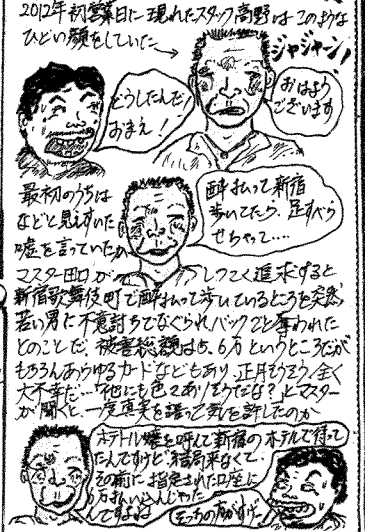 2012年初営業日に現れたスタッフ高野はこのような
ひどい顔をしていた→
ジャジャーン!
どうしたんだ!
おまえ!
おはよう
ございます
最初のうちは
などと見えすいた
嘘を言っていたが
酔払って新宿
歩いてたら、足すべら
せちゃって‥‥
マスター田口がしつこく追求すると
新宿歌舞伎町で酔払って歩いているところを突然、
若い男に不意討ちでなぐられバックごと奪われた
とのことだ。被害総額は5、6万というところだが
もちろんあらゆるカードなどもあり、正月そうそう全く
大不幸だ…「他にも色々ありそうだな?」とマスター
が聞くと、一度真実を語って気を許したのか
ホテトル嬢を呼んで新宿のホテルで待って
たんですけど、結局来なくて
その前に指定された口座に
6万払い込んじゃった
んですよね
そっちの方が